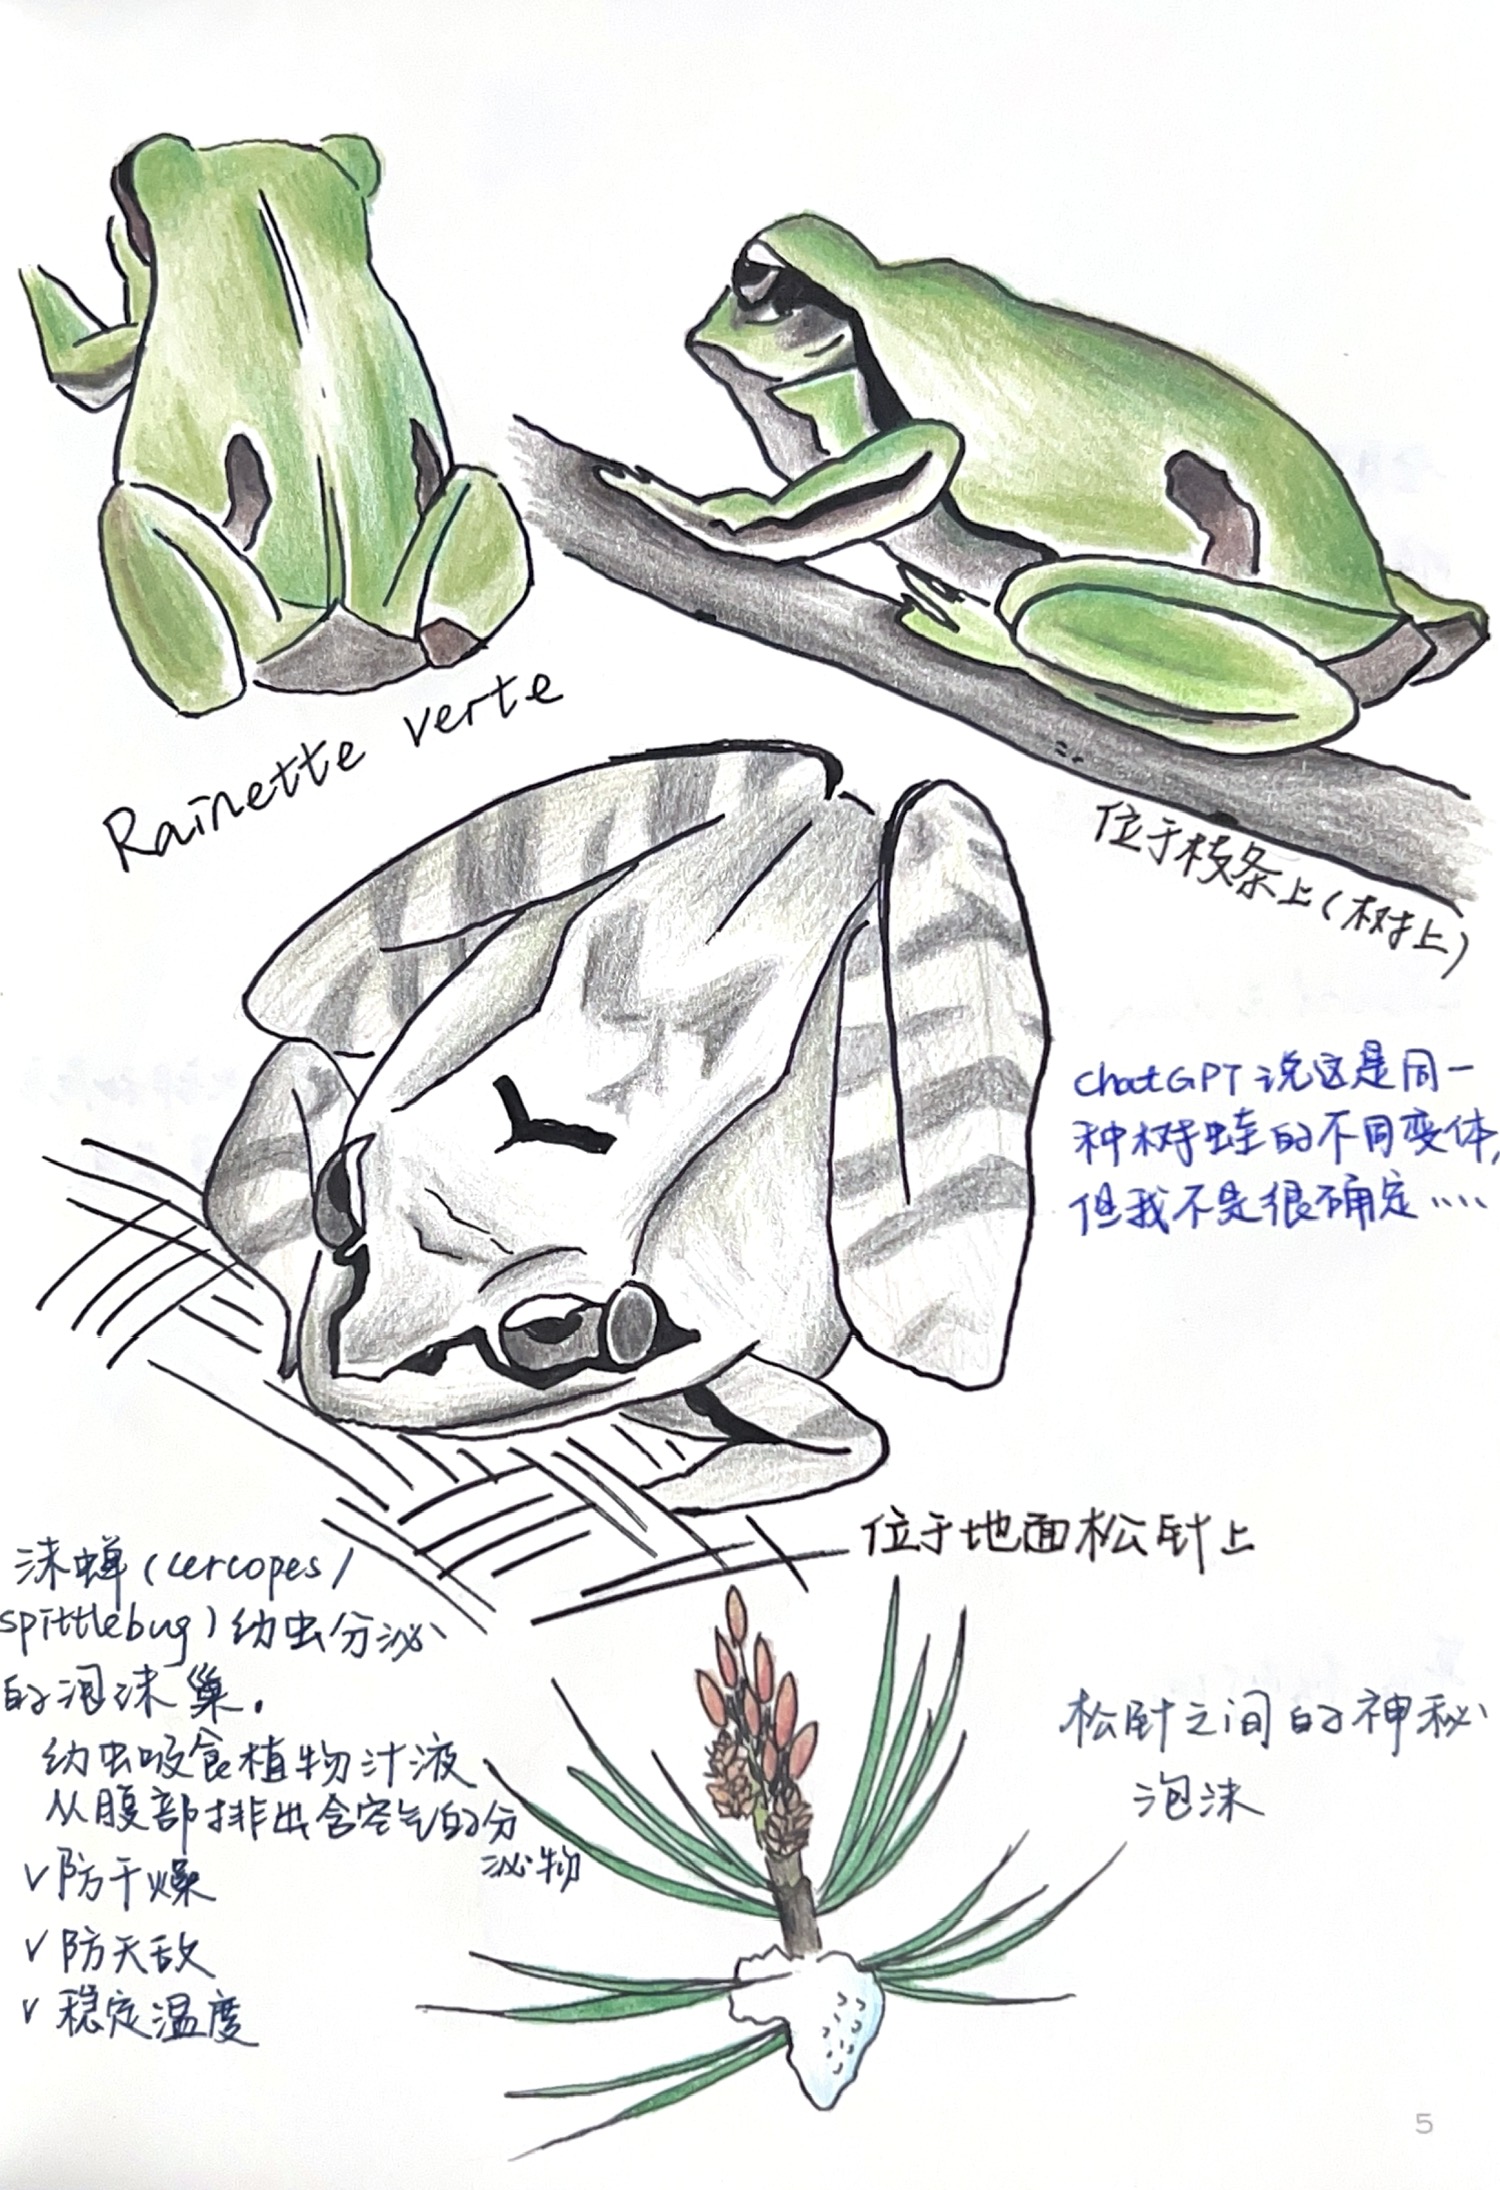 Rainette verte
位于枝条上(树上)
ChatGPT说这是同一
种树蛙的不同变体,
但我不是很确定……
位于地面松针上
沫蝉(cercopes/
spittlebug)幼虫分泌
的泡沫巢.
幼虫吸食植物汁液
从腹部排出含空气的分
泌物
√防干燥
√防天敌
√稳定温度
松针之间的神秘
泡沫
5